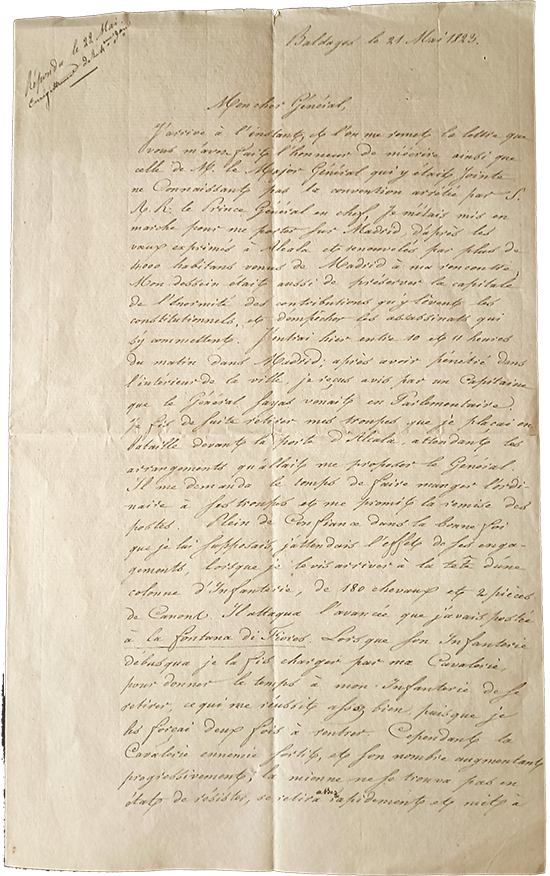 Répondu le 22 Mai.
Baldages le 21 Mai 1823.
Mon cher Général,
J'arrive à l'instant, et l'on me remet la lettre que
vous m'avez fait l'honneur de m'écrire ainsi que
celle de M. le Major Général qui y était jointe
ne Connaissant pas la convention arrêtée par S.
A. R. le Prince Général en chef, Je m'étais mis en
marche pour me porter sur Madrid d'après les
vœux exprimés à Alcala et renouvelés par plus de
4000 habitans venus de Madrid à ma rencontre,
Mon dessein était aussi de préserver la capitale
de l'Enormité des contributions qu'y lèvent les
constitutionnels, et d'empêcher les assassinats qui
s'y commettent. J'entrai hier entre 10 et 11 heures
du matin dans Madrid; après avoir pénétré dans
l'intérieur de la ville, je reçus avis par un Capitaine
que le Général Sayas venait en Parlementaire.
Je fis de suite retirer mes troupes que je plaçai en
bataille devant la porte d'Alcala, attendant les
arrangements qu'allait me proposer le Général.
Il me demanda le temps de faire manger l'ordi-
naire à ses troupes et me promit la remise des
postes. Plein de Confiance dans la bonne foi
que je lui supposais, j'attendais l'effet de ses enga-
gements, Lorsque je le vis arriver à la tête d'une
colonne d'Infanterie, de 180 chevaux et 2 pièces
de Canond. Il attaqua l'avancée que j'avais postée
à la fontana di Floires. Lorsque son Infanterie
débusqua je la fis charger par ma Cavalerie,
pour donner le temps à mon Infanterie de se
retirer, ce qui me réussit assez bien, puisque je
les forçai deux fois à rentrer. Cependant la
Cavalerie ennemie sortit, et son nombre augmentant
progressivement, la mienne ne se trouva pas en
état de résister, se retira assez rapidement et mit à